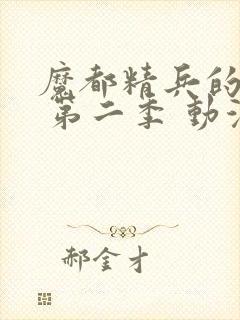 魔都精兵的
第二季 動
郝金才